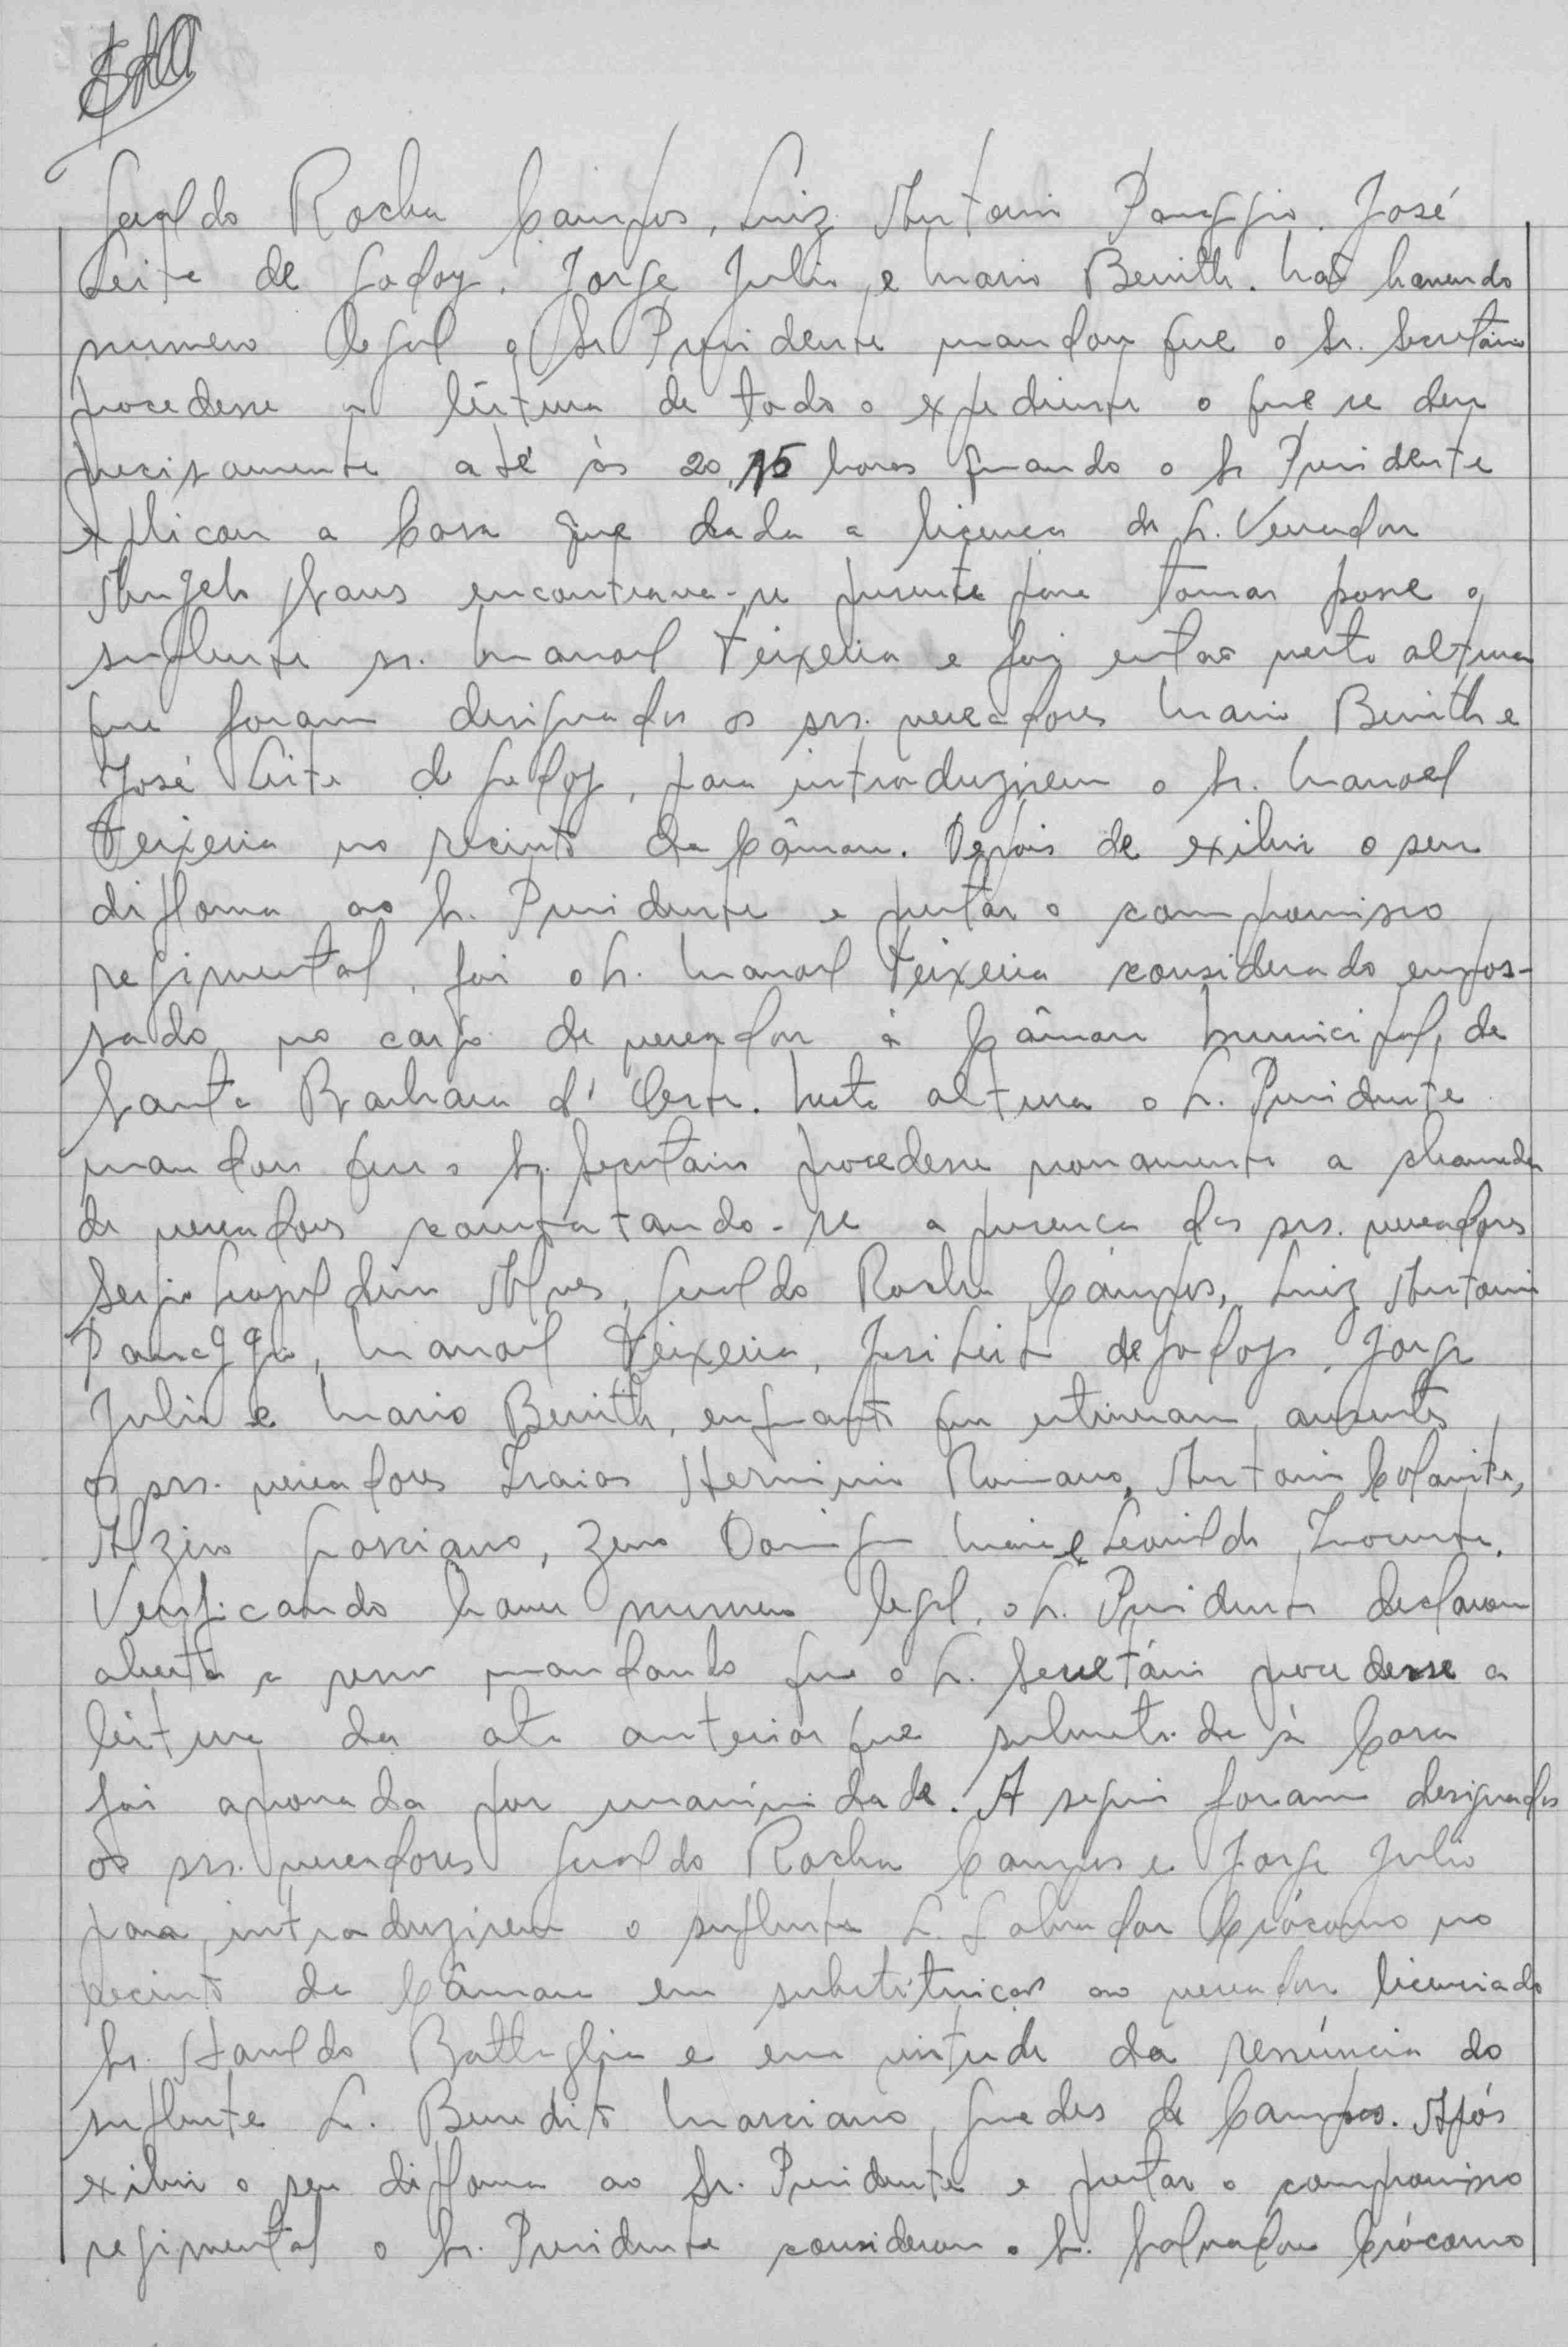 Geraldo Rocha Campos, Luiz Antonio Panaggio, José
Leite de Godoy, Jorge Julio, e Mario Benith. Não havendo
numero legal o Sr Presidente mandou que o Sr. Secretário
procedesse a leitura de todo o expediente o que se deu
precisamente até às 20,15 horas quando o Sr Presidente
explicou a Casa que dada a licença do Sr. Vereador
Angelo encontrava-se presente para tomar posse o
suplente sr. Manoel Teixeira e foi então nesta altura
que foram designados os srs. vereadores Mario Benith e
José Leite de Godoy, para introduzirem o Sr. Manoel
Teixeira no recinto da Câmara. Depois de exibir o seu
diploma ao Sr. Presidente e prestar o compromisso
regimental, foi o Sr. Manoel Teixeira considerado empos-
sado no cargo de vereador à Câmara Municipal, de
Santa Barbara d'Oeste. Nesta altura o Sr. Presidente
mandou que o Sr. Secretario procedesse novamente a chamada
de vereadores constatando-se a presença dos srs. vereadores
Sergio Leopoldino Alves, Geraldo Rocha Campos, Luiz Antonio
Panaggio, Manoel Teixeira, José Leite de Godoy, Jorge
Julio e Mario Benith, enquanto que estiveram ausentes
os srs. vereadores Izaias Herminio Romano, Antonio
Alziro Gasciano, Zeno Maia e Leonildo
Verificando haver numero legal, o Sr. Presidente declarou
aberta a sessão mandando que o Sr. Secretário procedesse a
leitura da ata anterior que submetida à Casa
foi aprovada por unanimidade. A seguir foram designados
os srs. vereadores Geraldo Rocha Campos e Jorge Julio
para introduzirem o suplente Sr. Salvador Crócomo no
recinto da Câmara em substituição ao vereador licenciado
Sr. Haroldo Battaglia e em virtude da renúncia do
suplente Sr. Benedito Marciano Guedes de Campos. Após
exibir o seu diploma ao Sr. Presidente e prestar o compromisso
regimental o Sr. Presidente considerou o Sr. Salvador Crócomo